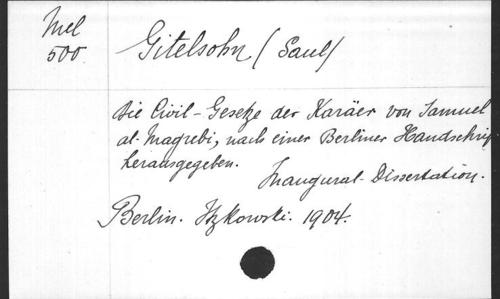 Mel
500
Gitelsohn (Saul)
Die Civil-Gesetze der Karäer von Samuel
al-Magrebi, nach einer Berliner Handschrift
herausgegeben.
Inaugural-Dissertation.
Berlin. Itzkowski. 1904.